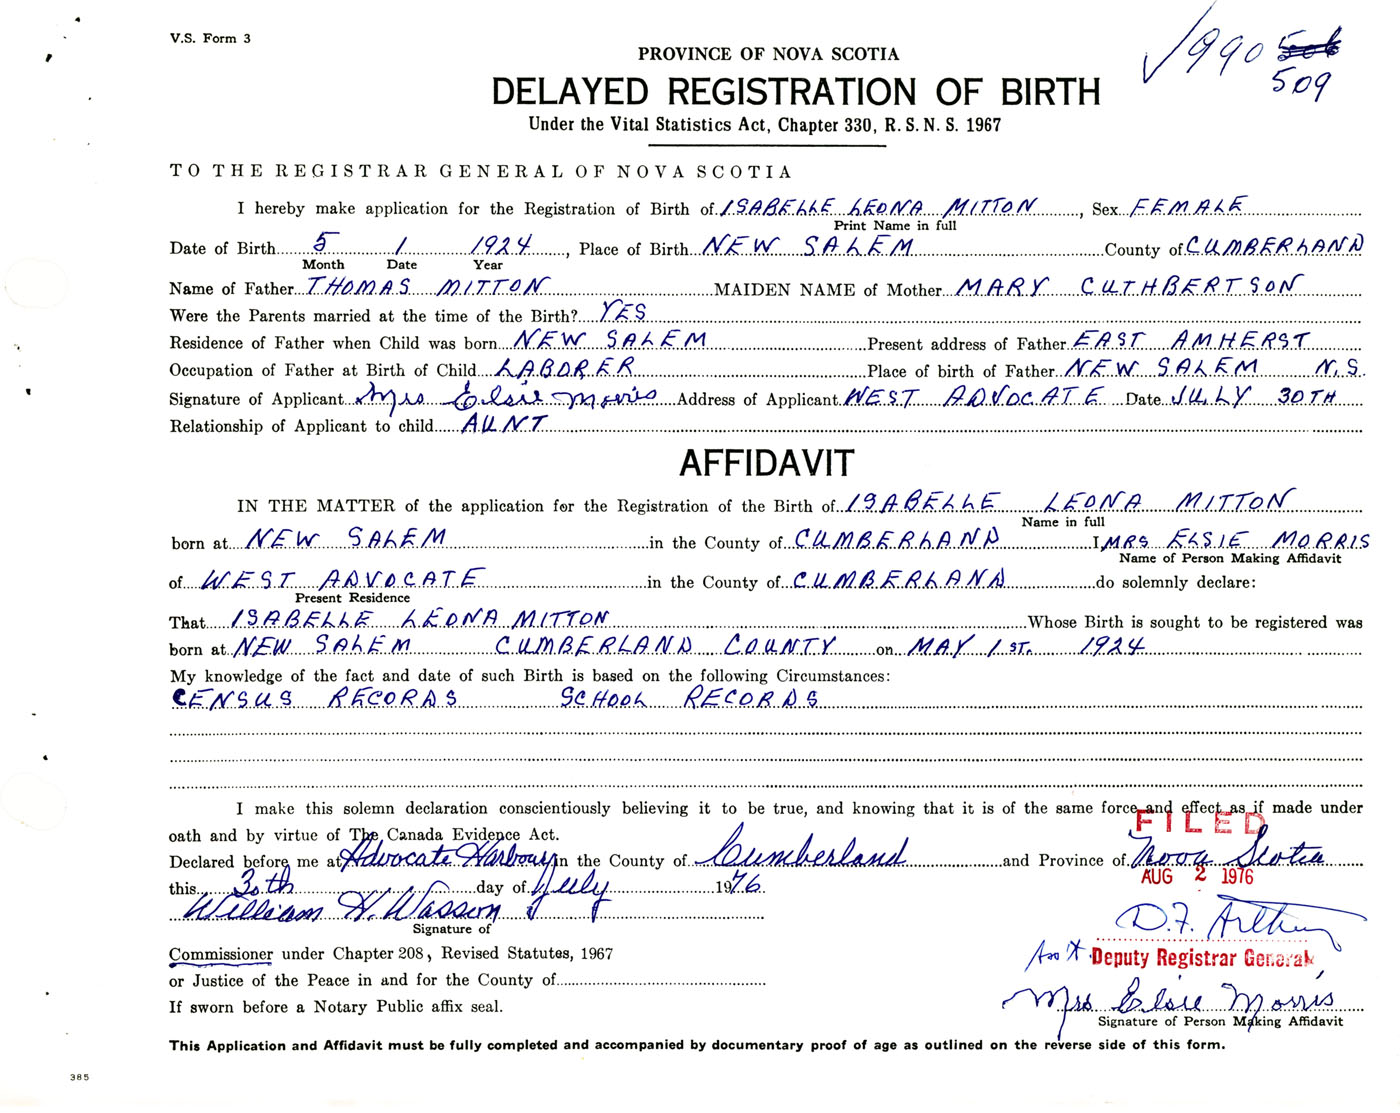 V.S. Form 3
990 506
509
PROVINCE OF NOVA SCOTIA
DELAYED REGISTRATION OF BIRTH
Under the Vital Statistics Act, Chapter 330, R.S.N.S. 1967
TO THE REGISTRAR GENERAL OF NOVA SCOTIA
I hereby make application for the Registration of Birth of ISABELLE LEONA MITTON, Sex FEMALE
Print Name in full
Date of Birth 5 1 1924, Place of Birth NEW SALEM County of CUMBERLAND
Month Date Year
Name of Father THOMAS MITTON MAIDEN NAME of Mother MARY CUTHBERTSON
Were the Parents married at the time of the Birth? YES
Residence of Father when Child was born NEW SALEM Present address of Father EAST AMHERST
Occupation of Father at Birth of Child LABORER Place of birth of Father NEW SALEM N.S.
Signature of Applicant Mrs Elsie Morris Address of Applicant WEST ADVOCATE Date JULY 30TH
Relationship of Applicant to child AUNT
AFFIDAVIT
IN THE MATTER of the application for the Registration of the Birth of ISABELLE LEONA MITTON
Name in full
born at NEW SALEM in the County of CUMBERLAND I, MRS ELSIE MORRIS
Name of Person Making Affidavit
of WEST ADVOCATE in the County of CUMBERLAND do solemnly declare:
Present Residence
That ISABELLE LEONA MITTON Whose Birth is sought to be registered was
born at NEW SALEM CUMBERLAND COUNTY on MAY 1ST. 1924
My knowledge of the fact and date of such Birth is based on the following Circumstances:
CENSUS RECORDS SCHOOL RECORDS
I make this solemn declaration conscientiously believing it to be true, and knowing that it is of the same force and effect as if made under
oath and by virtue of The Canada Evidence Act.
FILED
Declared before me at Advocate Harbour in the County of Cumberland and Province of Nova Scotia
this 30th day of July 1976
AUG 2 1976
William H. Wasson
Signature of
D.F.
Commissioner under Chapter 208, Revised Statutes, 1967
Ass't Deputy Registrar General
or Justice of the Peace in and for the County of
Mrs Elsie Morris
If sworn before a Notary Public affix seal.
Signature of Person Making Affidavit
This Application and Affidavit must be fully completed and accompanied by documentary proof of age as outlined on the reverse side of this form.
385